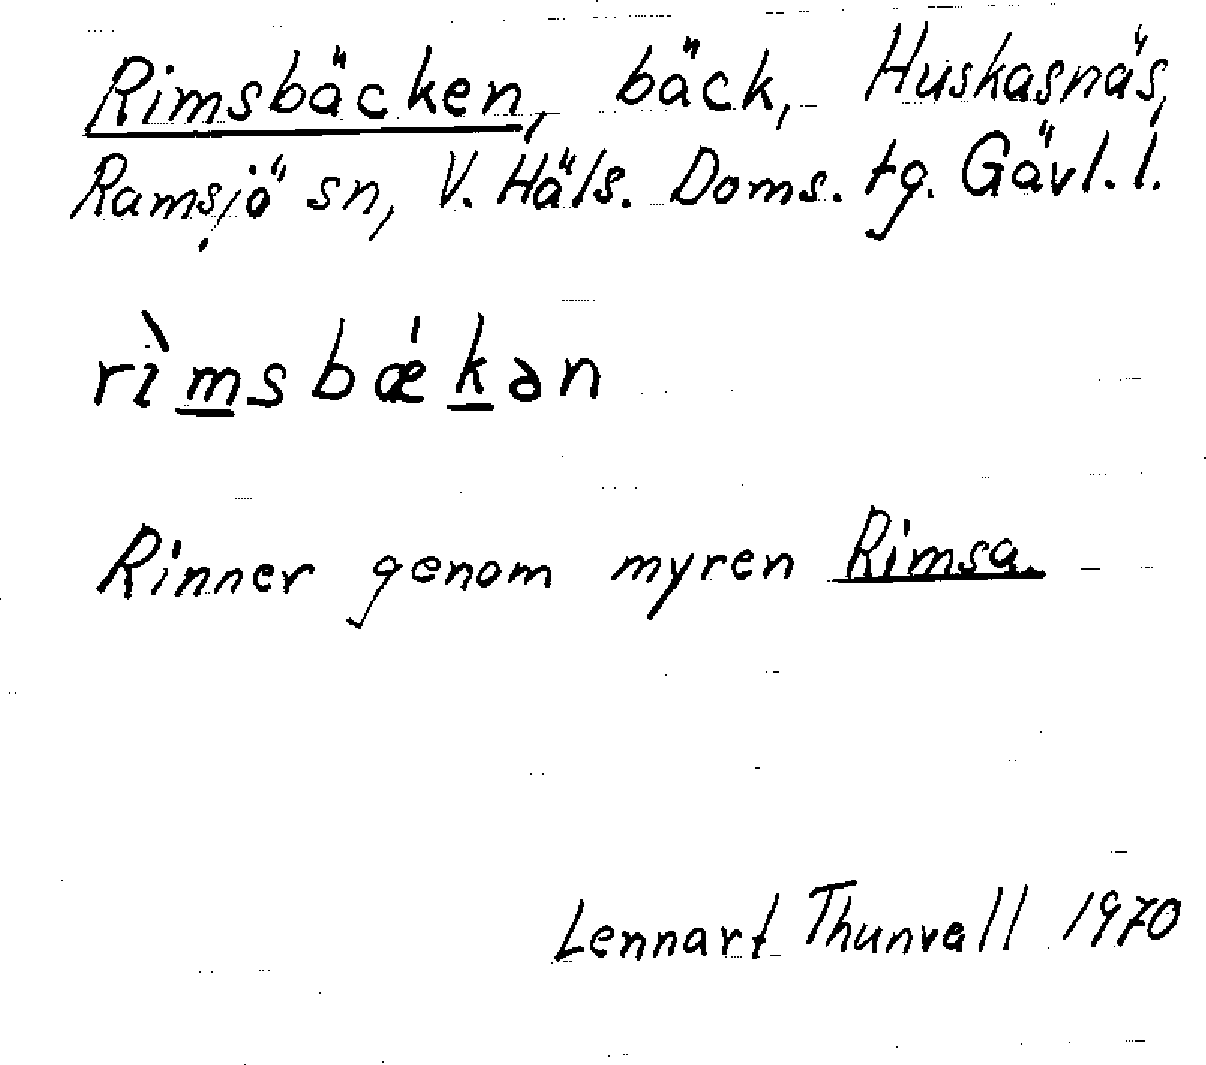 Rimsbäcken, bäck, Huskasnäs,
Ramsjö sn, V. Häls. Doms. tg. Gävl. l.
rìmsbǽkən
Rinner genom myren Rimsa.
Lennart Thunvall 1970